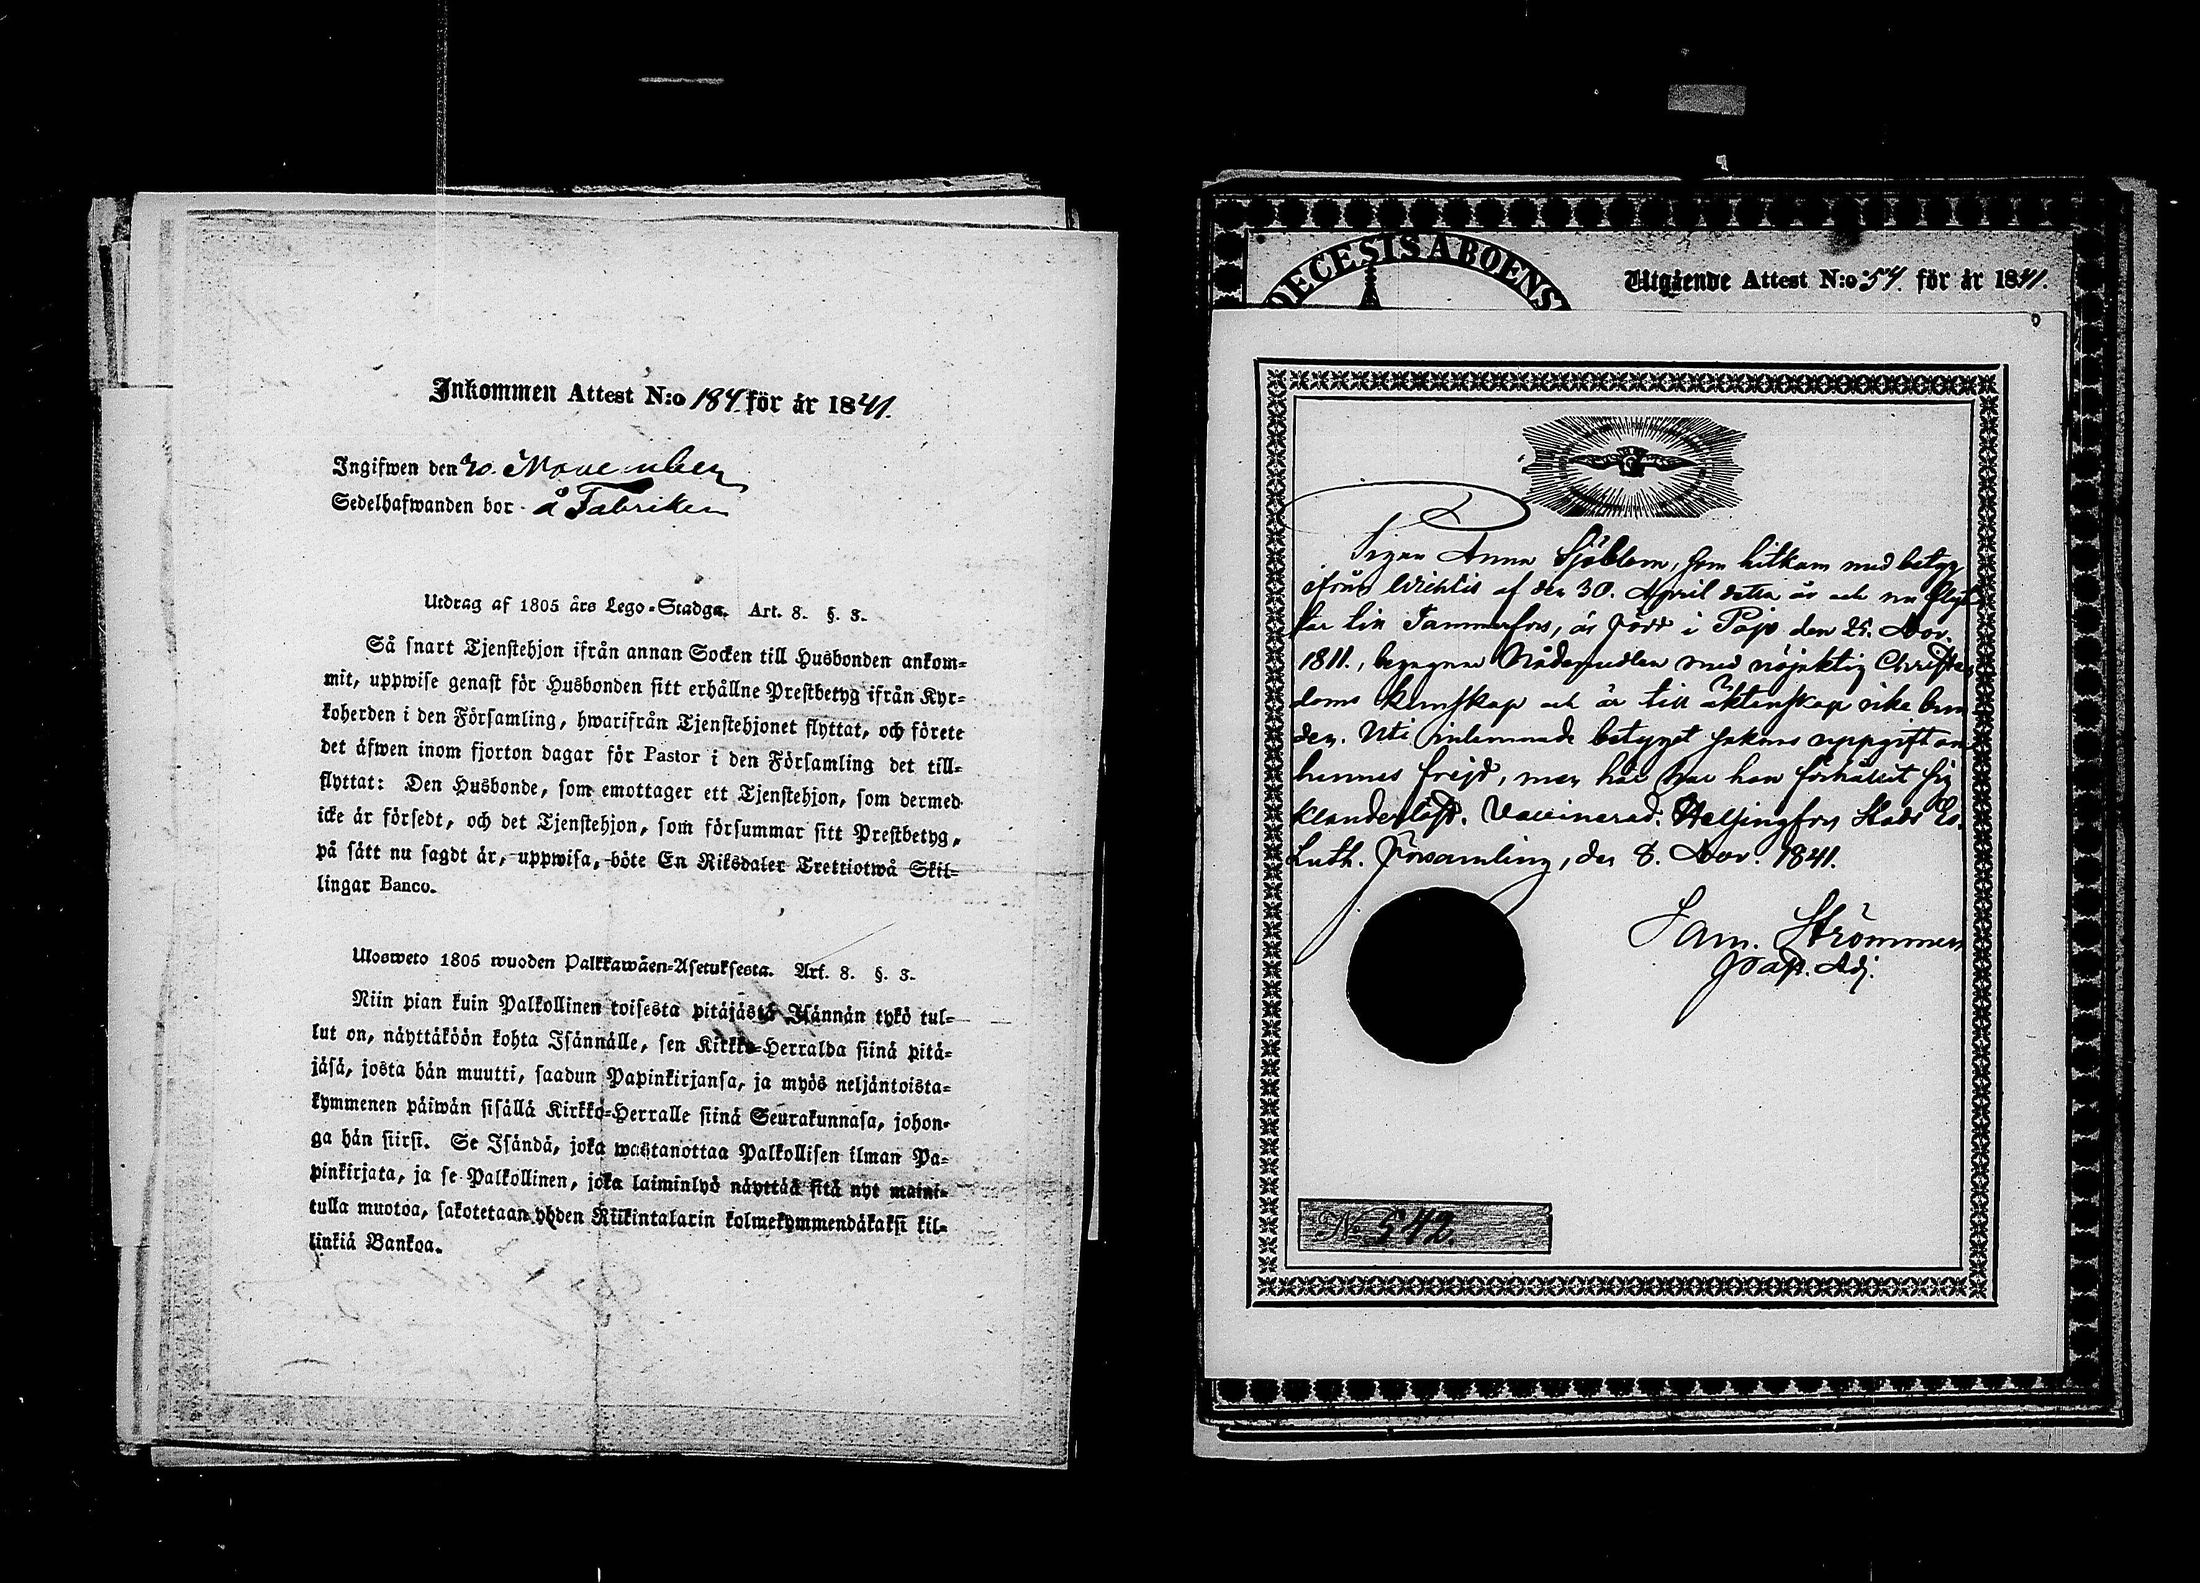 Inkommen Attest N:o 184. för år 1841.
Ingifwen den 20. November
Sedelhafwanden bor å Fabriken
Utdrag af 1805 års Lego-Stadga. Art. 8. §. 3.
Så snart Tjenstehjon ifrån annan Socken till Husbonden ankom-
mit, uppwise genast för Husbonden sitt erhållne Prestbetyg ifrån Kyr-
koherden i den Församling, hwarifrån Tjenstehjonet flyttat, och förete
det äfwen inom fjorton dagar för Pastor i den Församling det till-
flyttat: Den Husbonde, som emottager ett Tjenstehjon, som dermed
icke är försedt, och det Tjenstehjon, som försummar sitt Prestbetyg,
på sätt nu sagdt är, uppwisa, böte En Riksdaler Trettiotwå Skil-
lingar Banco.
Ulosweto 1805 wuoden Palkkawäen-Asetuksesta. Art. 8. §. 3.
Niin pian kuin Palkollinen toisesta pitäjästä Isännän tykö tul-
lut on, näyttäköön kohta Isännälle, sen Kirkko-Herralda siinä pitä-
jäsä, josta hän muutti, saadun Papinkirjansa, ja myös neljäntoista-
kymmenen päiwän sisällä Kirkko-Herralle siinä Seurakunnasa, johon-
ga hän siirsi. Se Isändä, joka wastanottaa Palkollisen ilman Pa-
pinkirjata, ja se Palkollinen, joka laiminlyö näyttää sitä nyt maini-
tulla muotoa, sakotetaan yhden Riikintalarin kolmekymmendäkaksi kil-
linkiä Bankoa.
DECESIS ABOENS
Utgående Attest N:o 54. för år 1841.
Pigan Anna Sjöblom, som hitkom med betyg
ifrån Wichtis af den 30. April detta år och nu flyt
tar till Tammerfors, är född i Pojo den 25. Nov.
1811., begagnar Nådemedlen med nöjaktig Christen
doms kunskap och är till äktenskap icke bun
den. Uti inlemnade betyget saknas uppgift om
hennes frejd, men här har hon förhållit sig
klanderlöst. Vaccinerad. Helsingfors Stads Ev.
Luth. Församling, den 8. Nov. 1841.
Sam. Strömmer
Past. Adj.
No 542.